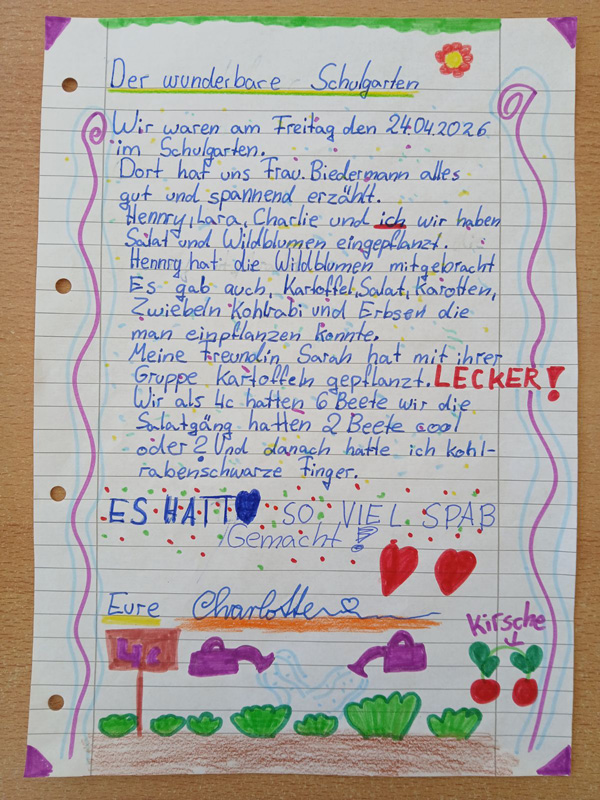 Der wunderbare Schulgarten
Wir waren am Freitag den 24.04.2026
im Schulgarten.
Dort hat uns Frau. Biedermann alles
gut und spannend erzählt.
Hennry, Lara, Charlie und ich wir haben
Salat und Wildblumen eingepflanzt.
Hennry hat die Wildblumen mitgebracht
Es gab auch, Kartoffel, Salat, Karotten,
Zwiebeln Kohlrabi und Erbsen die
man einpflanzen konnte.
Meine Freundin Sarah hat mit ihrer
Gruppe Kartoffeln gepflanzt. LECKER!
Wir als 4c hatten 6 Beete wir die
Salatgäng hatten 2 Beete cool
oder? Und danach hatte ich kohl-
rabenschwarze Finger.
ES HATT SO VIEL SPAß
Gemacht!
Eure Charlotte
4c
Kirsche